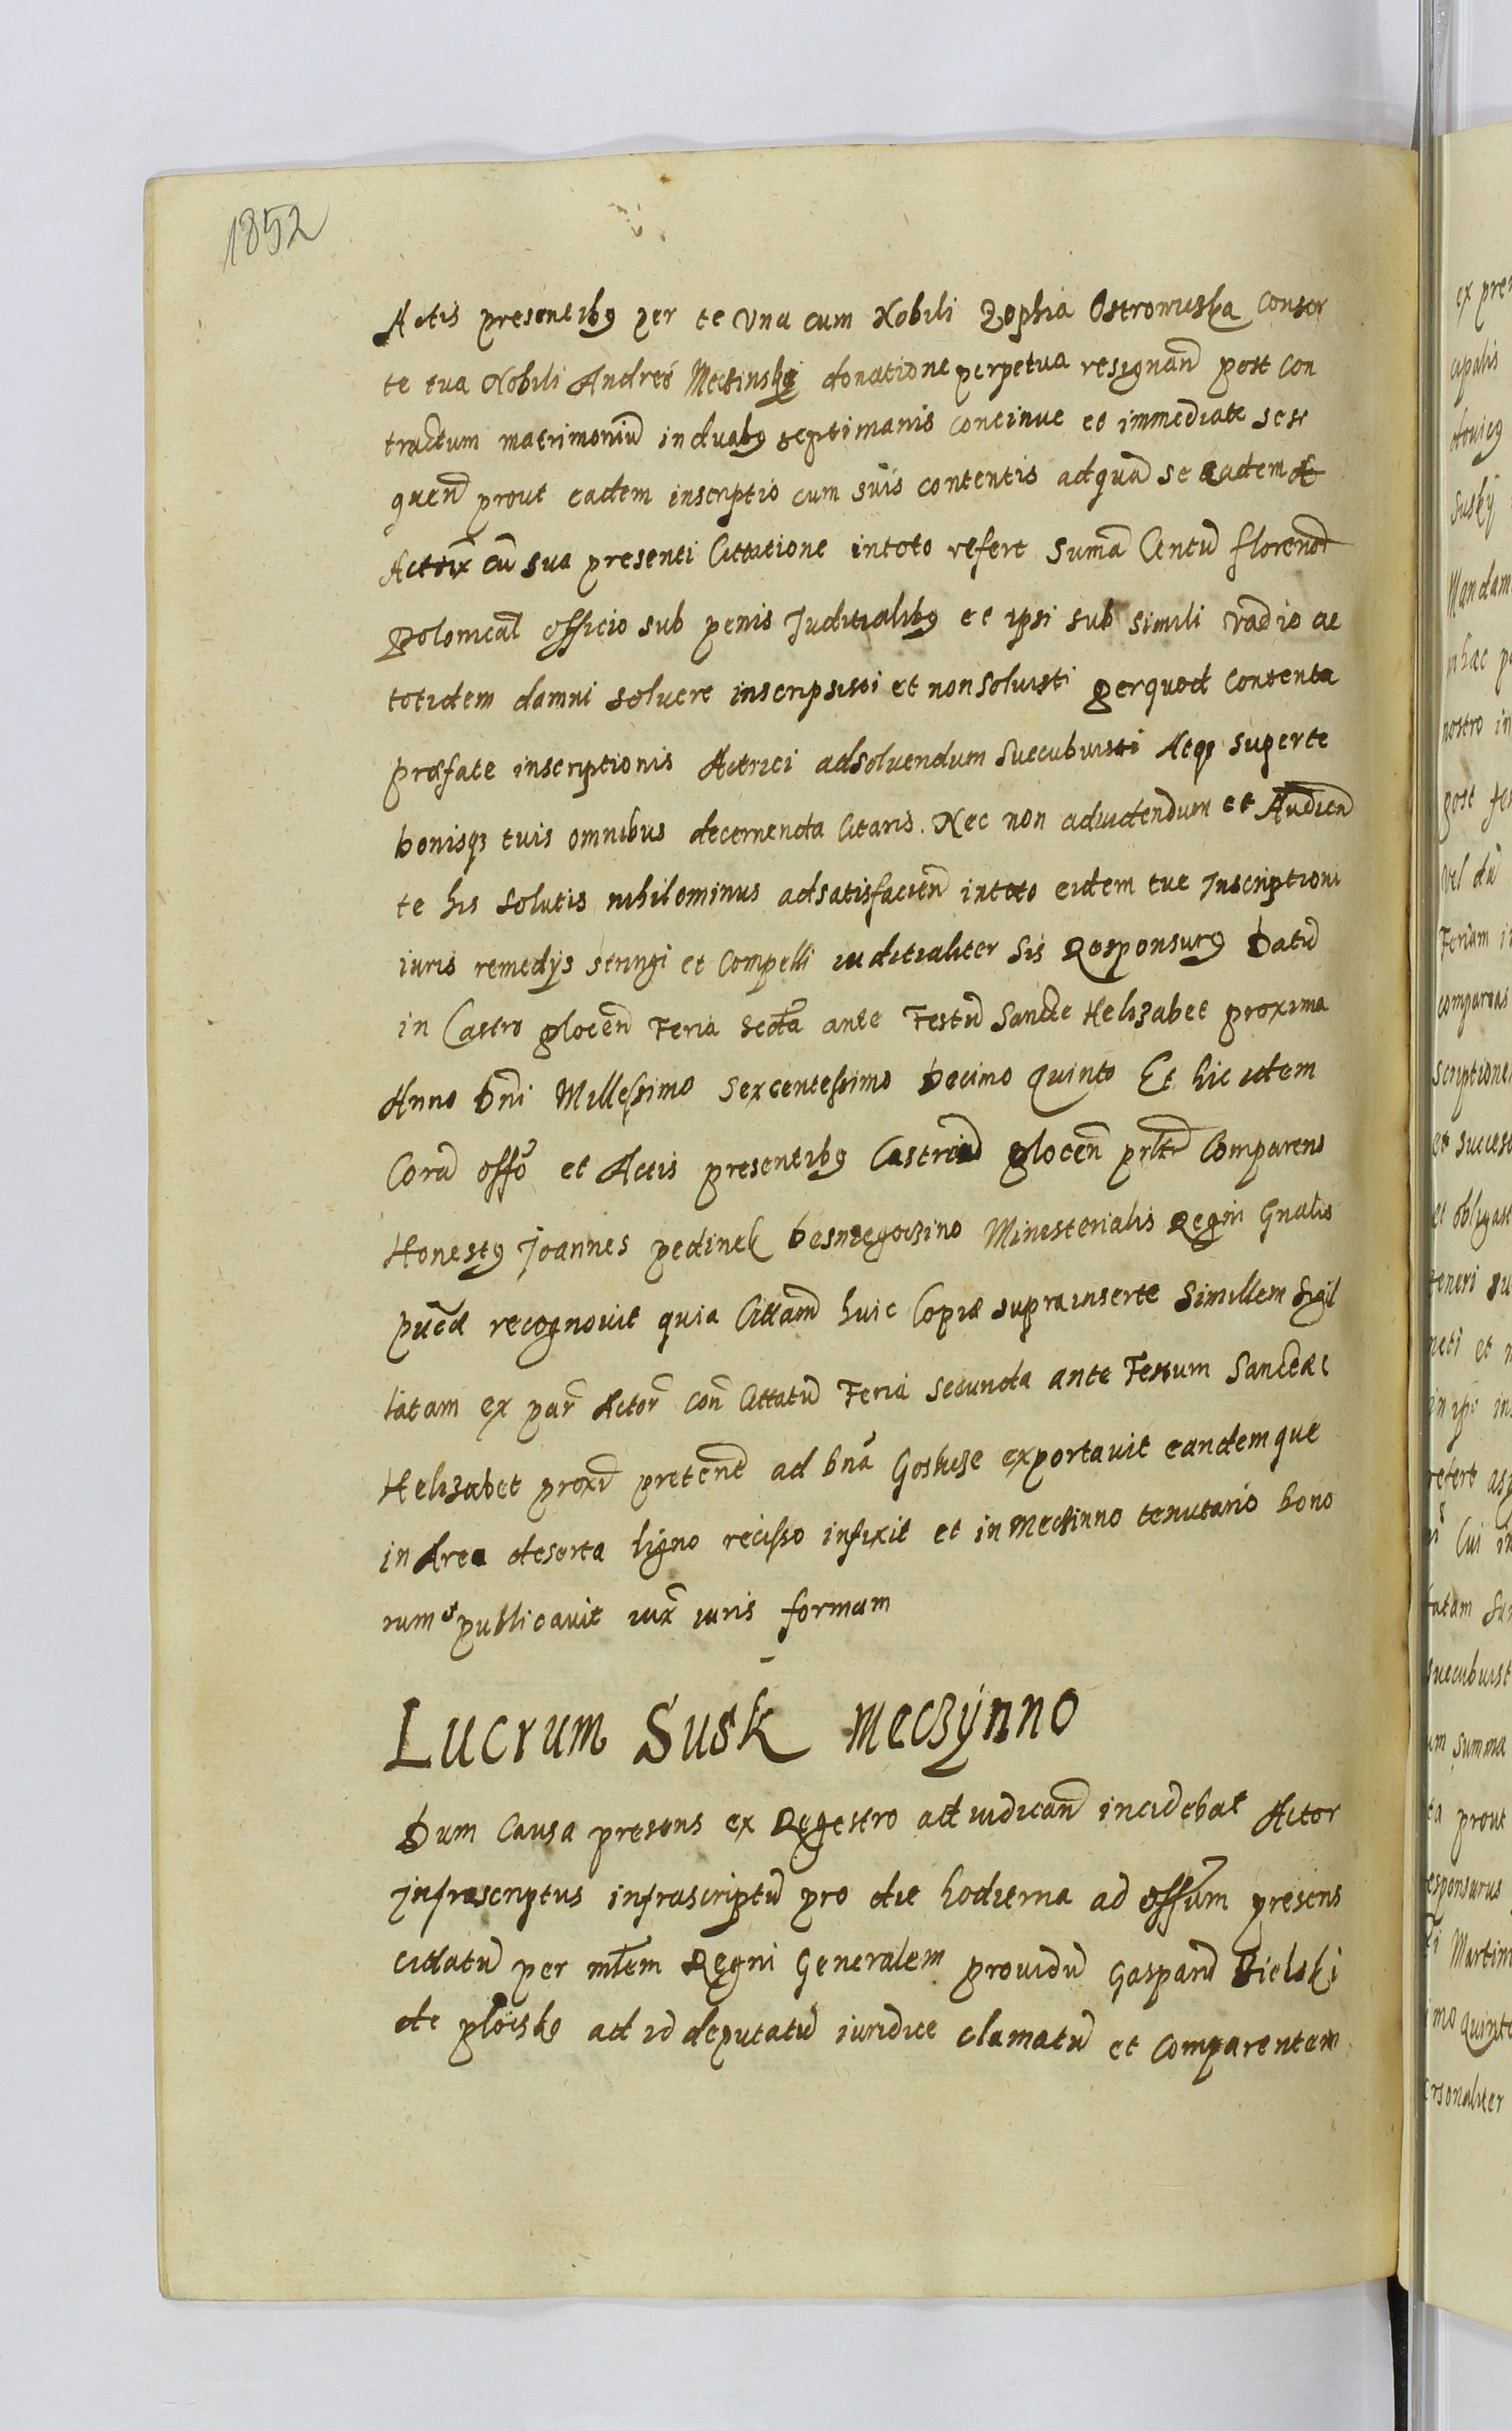 1852
Actis presentibq per te una cum Nobili Zophia Ostrowiska Consor
te tua Nobili Andree Meczinski donatione perpetua resignand post con
tractum matrimoniū in duabq septimanis continue et immediate sese
quen̄ prout eadem inscriptio cum suis contentis ad quā se eadem
Actrix cū sua presenti Cittatione in toto refert Sumā Centū florenor
Polonical officio sub penis Juditialibq et ipsi sub simili vadio ac
totidem damni solvere inscripsisti et non solvisti per quod contenta
præfate inscriptionis Actrici ad solvendum succubuisti Atqz super te
bonisqz tuis omnibus decernenda Citaris. Nec non ad videndum et Audien̄
te his solutis nihilominus ad satisfacien̄ in toto eidem tue Inscriptioni
iuris remedys stringi et Compelli iuditialiter Sis Responsurq Datū
in Castro plocen̄ Feria Secdā ante Festū Sancte Helizabet proxima
Anno Dni Millessimo Sexcentessimo Decimo Quinto Et hic idem
Corā offō et Actis presentibq Castren̄ plocen̄ prltr Comparens
Honestq Joannes pedinek Ministerialis Regni Gnalis
recognovit quia Cittam̄ huic Copiæ supra inserte Similem Sigil
latam ex par̄ Actor̄ con̄ Cittatū Feria Secunda ante Festum Sanctæ
Helizabet proxī pretent̄ ad bnā exportavit eandemque
in Area deserta ligno recisso infixit et in Meczinno tenutario bono
rum et publicavit iux̄ iuris formam
Lucrum Susk Meczÿnno
Dum Causa presens ex Regestro ad iudicand incidebat Actor
infrascriptus infrascriptū pro die hodierna ad offūm presens
cittatū per mlem Regni Generalem providū Gasparū Bielski
de plocsko ad id deputatū iuridice clamatū et Comparentem
ex pre
cipalis
Susky
Mandam
in hac p
nostro in
post fes
vel dū
Feriam
compareas
scriptione
et succes
et obligast
teneri su
neti et n
in
refert
Cui in
tatam Su
succubuist
um summa
ta prout
esponsurus
Martin
imo quinto
ersonaliter